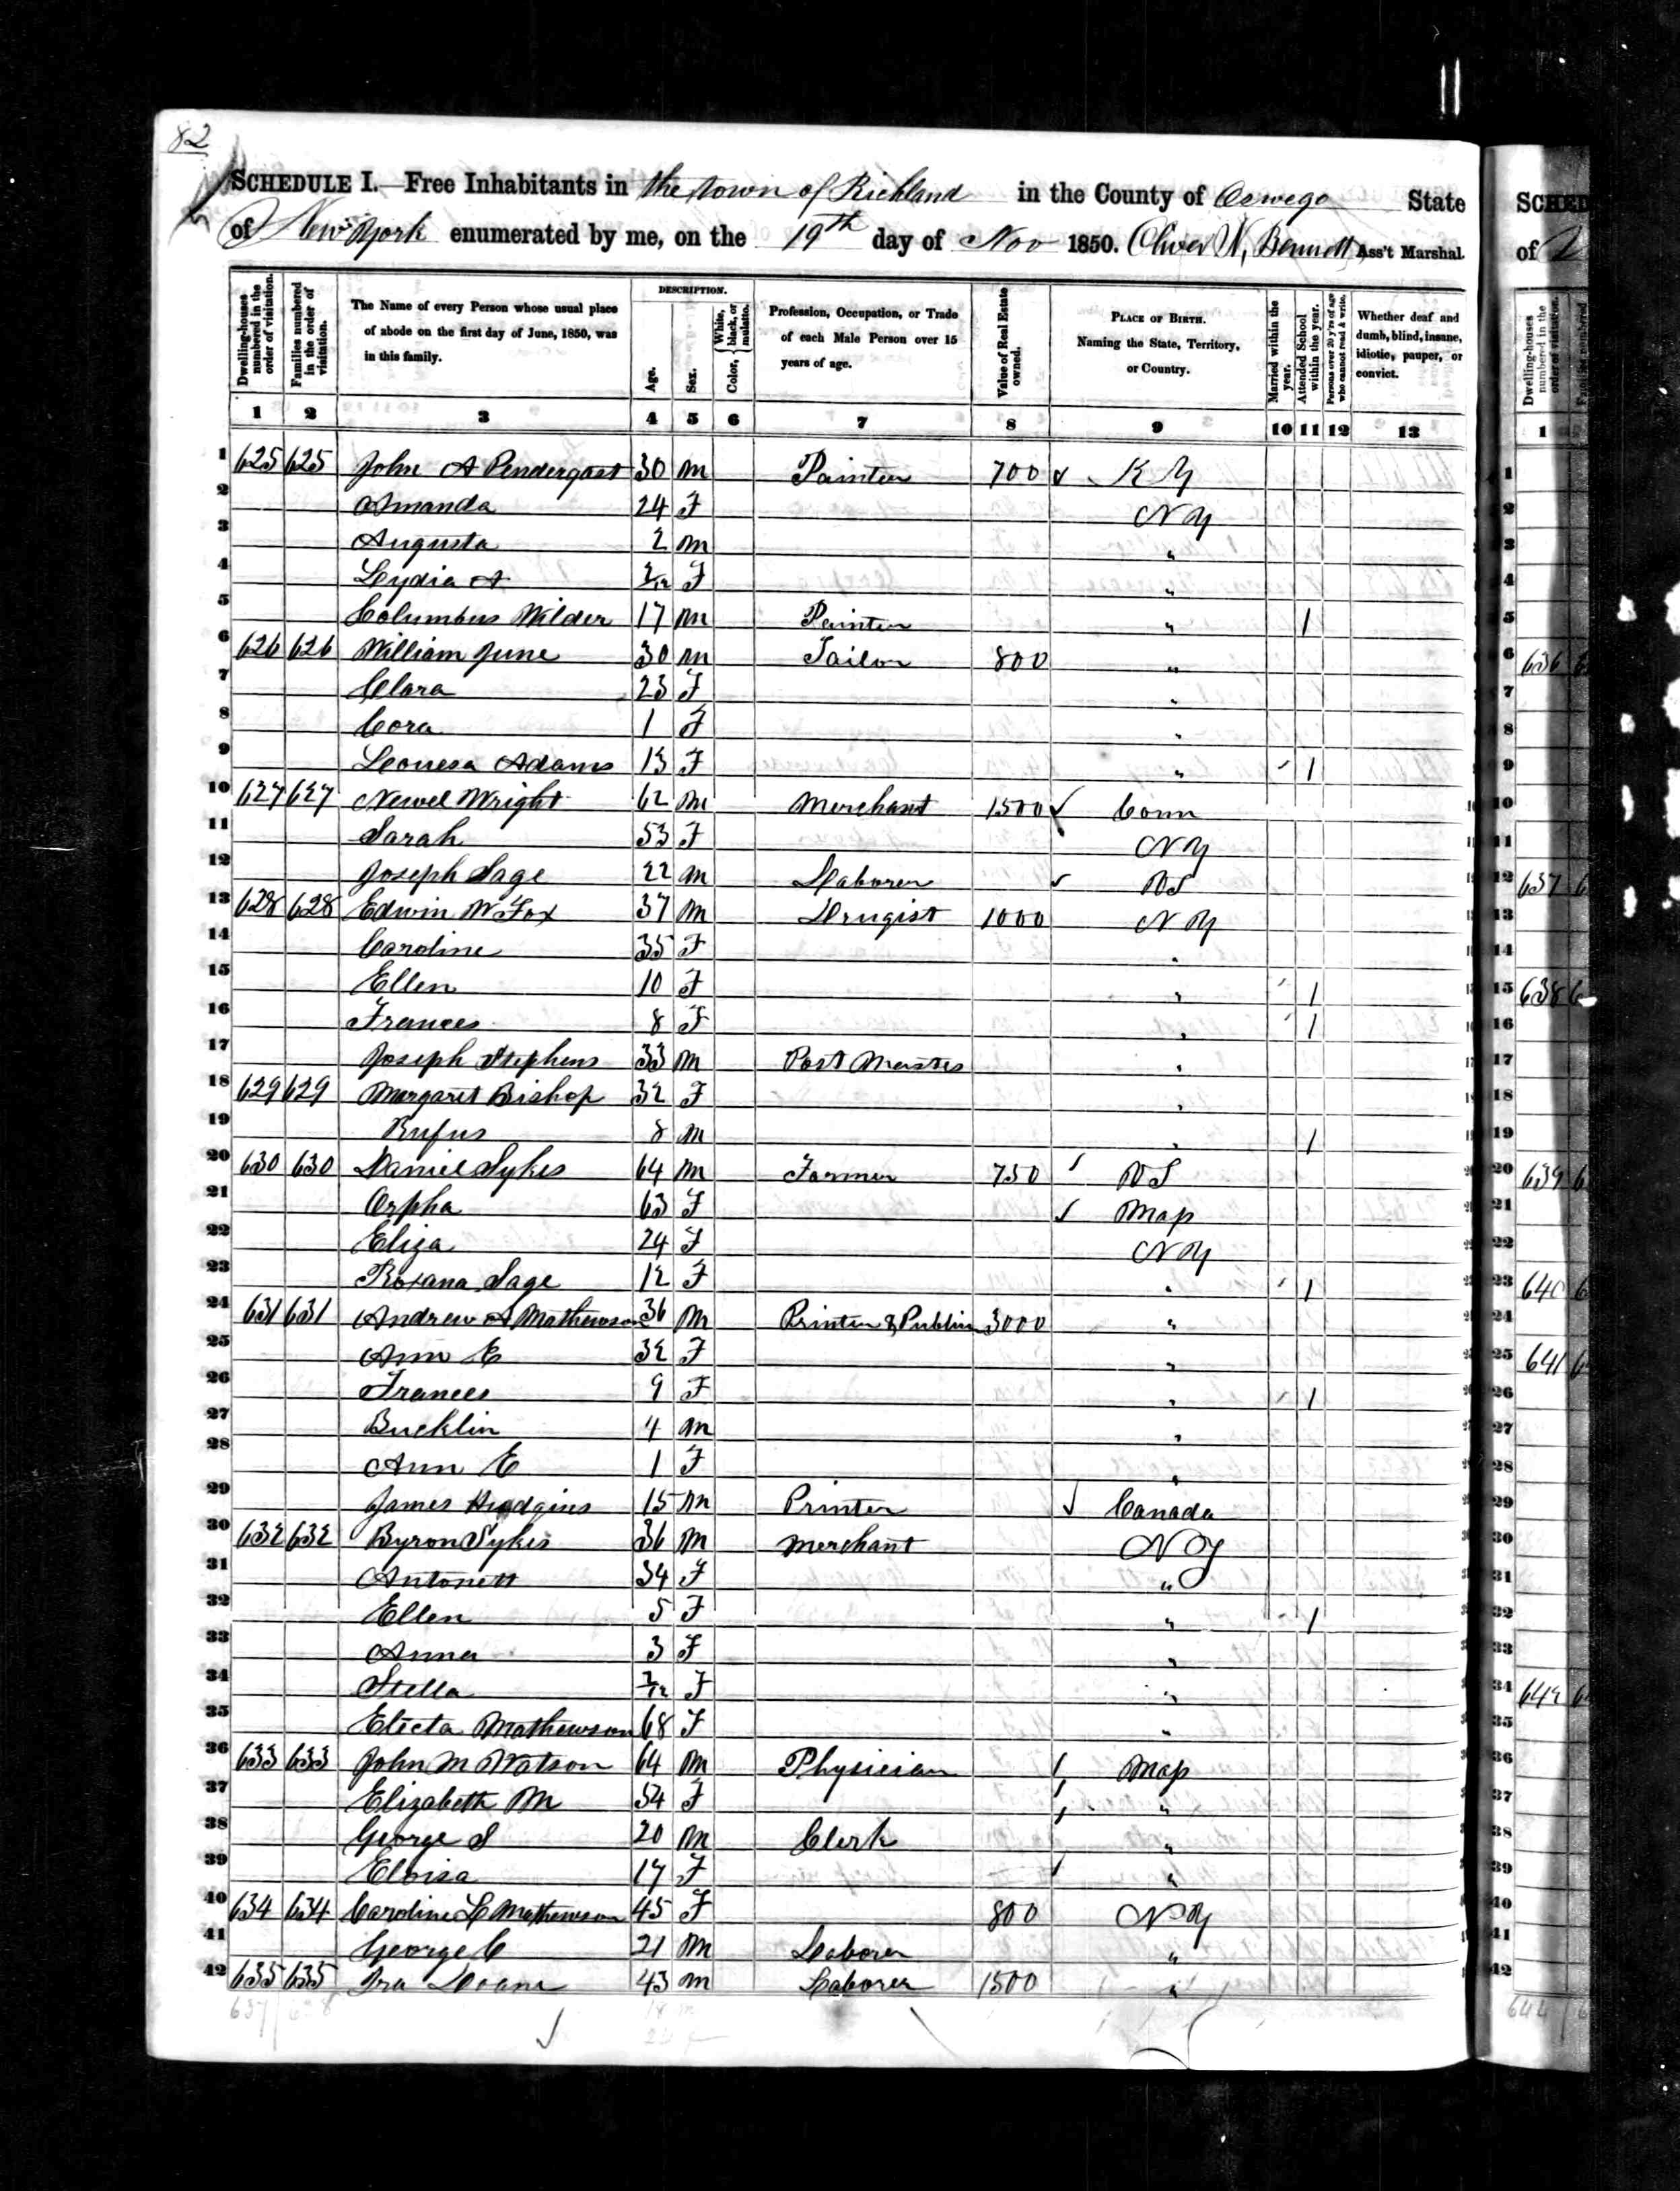 82
SCHEDULE I.—Free Inhabitants in the town of Richland in the County of Oswego State
of New York enumerated by me, on the 19th day of Nov 1850. Oliver N, Bennett Ass't Marshal.
Dwelling-houses numbered in the order of visitation.
Families numbered in the order of visitation.
The Name of every Person whose usual place of abode on the first day of June, 1850, was in this family.
DESCRIPTION.
Age.
Sex.
Color, { White, black, or mulatto.
Profession, Occupation, or Trade of each Male Person over 15 years of age.
Value of Real Estate owned.
PLACE OF BIRTH. Naming the State, Territory, or Country.
Married within the year.
Attended School within the year.
Persons over 20 y'rs of age who cannot read & write.
Whether deaf and dumb, blind, insane, idiotic, pauper, or convict.
1 2 3 4 5 6 7 8 9 10 11 12 13
1 625 625 John A Pendergast 30 m Painter 700 ✓ K Y
2 Amanda 24 F N Y
3 Augusta 2 m "
4 Lydia A 2/12 F "
5 Columbus Wilder 17 m Painter " 1
6 626 626 William June 30 m Tailor 800 "
7 Clara 23 F "
8 Cora 1 F "
9 Leonesa Adams 13 F " 1
10 627 627 Newel Wright 62 m Merchant 1500 ✓ Conn
11 Sarah 53 F N Y
12 Joseph Sage 22 m Laborer ✓
13 628 628 Edwin W Fox 37 m Drugist 1000 N Y
14 Caroline 35 F "
15 Ellen 10 F " 1
16 Frances 8 F " 1
17 Joseph Stephens 33 m Post Master "
18 629 629 Margaret Bishop 32 F "
19 Rufus 8 m " 1
20 630 630 Daniel Sykes 64 m Farmer 750
21 Orpha 63 F ✓ Mass
22 Eliza 24 F N Y
23 Roxana Sage 12 F " 1
24 631 631 Andrew A Mathewson 36 m Printer & Publis 3000 "
25 Ann E 32 F "
26 Frances 9 F " 1
27 Bucklin 4 m "
28 Ann E 1 F "
29 James Hudgins 15 m Printer ✓ Canada
30 632 632 Byron Sykes 36 m Merchant N Y
31 Antonett 34 F "
32 Ellen 5 F " 1
33 Anna 3 F "
34 Stella F "
35 Electa Mathewson 68 F "
36 633 633 John M Watson 64 m Physician Mass
37 Elizabeth M 54 F "
38 George S 20 m Clerk "
39 Eloisa 17 F "
40 634 634 Caroline L Mathewson 45 F 800 N Y
41 George C 21 m Laborer "
42 635 635 Ira Doane 43 m Laborer 1500 "
SCHED
of
Dwelling-houses numbered in the order of visitation.
1
1
2
3
4
5
6 636
7
8
9
10
11
12 637
13
14
15 638
16
17
18
19
20 639
21
22
23 640
24
25 641
26
27
28
29
30
31
32
33
34 642
35
36
37
38
39
40
41
42
644